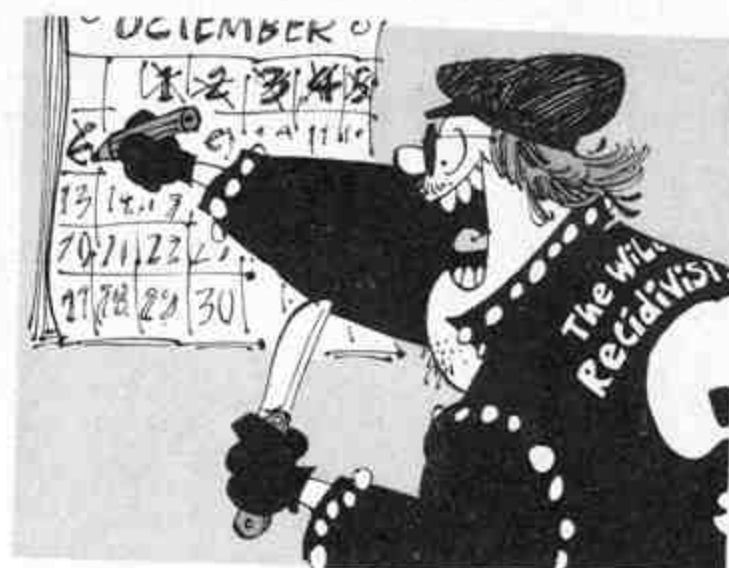 OCTEMBER
1 2 3 4 5
13 14
20 21 22
27 28 29 30
The
Recidivist